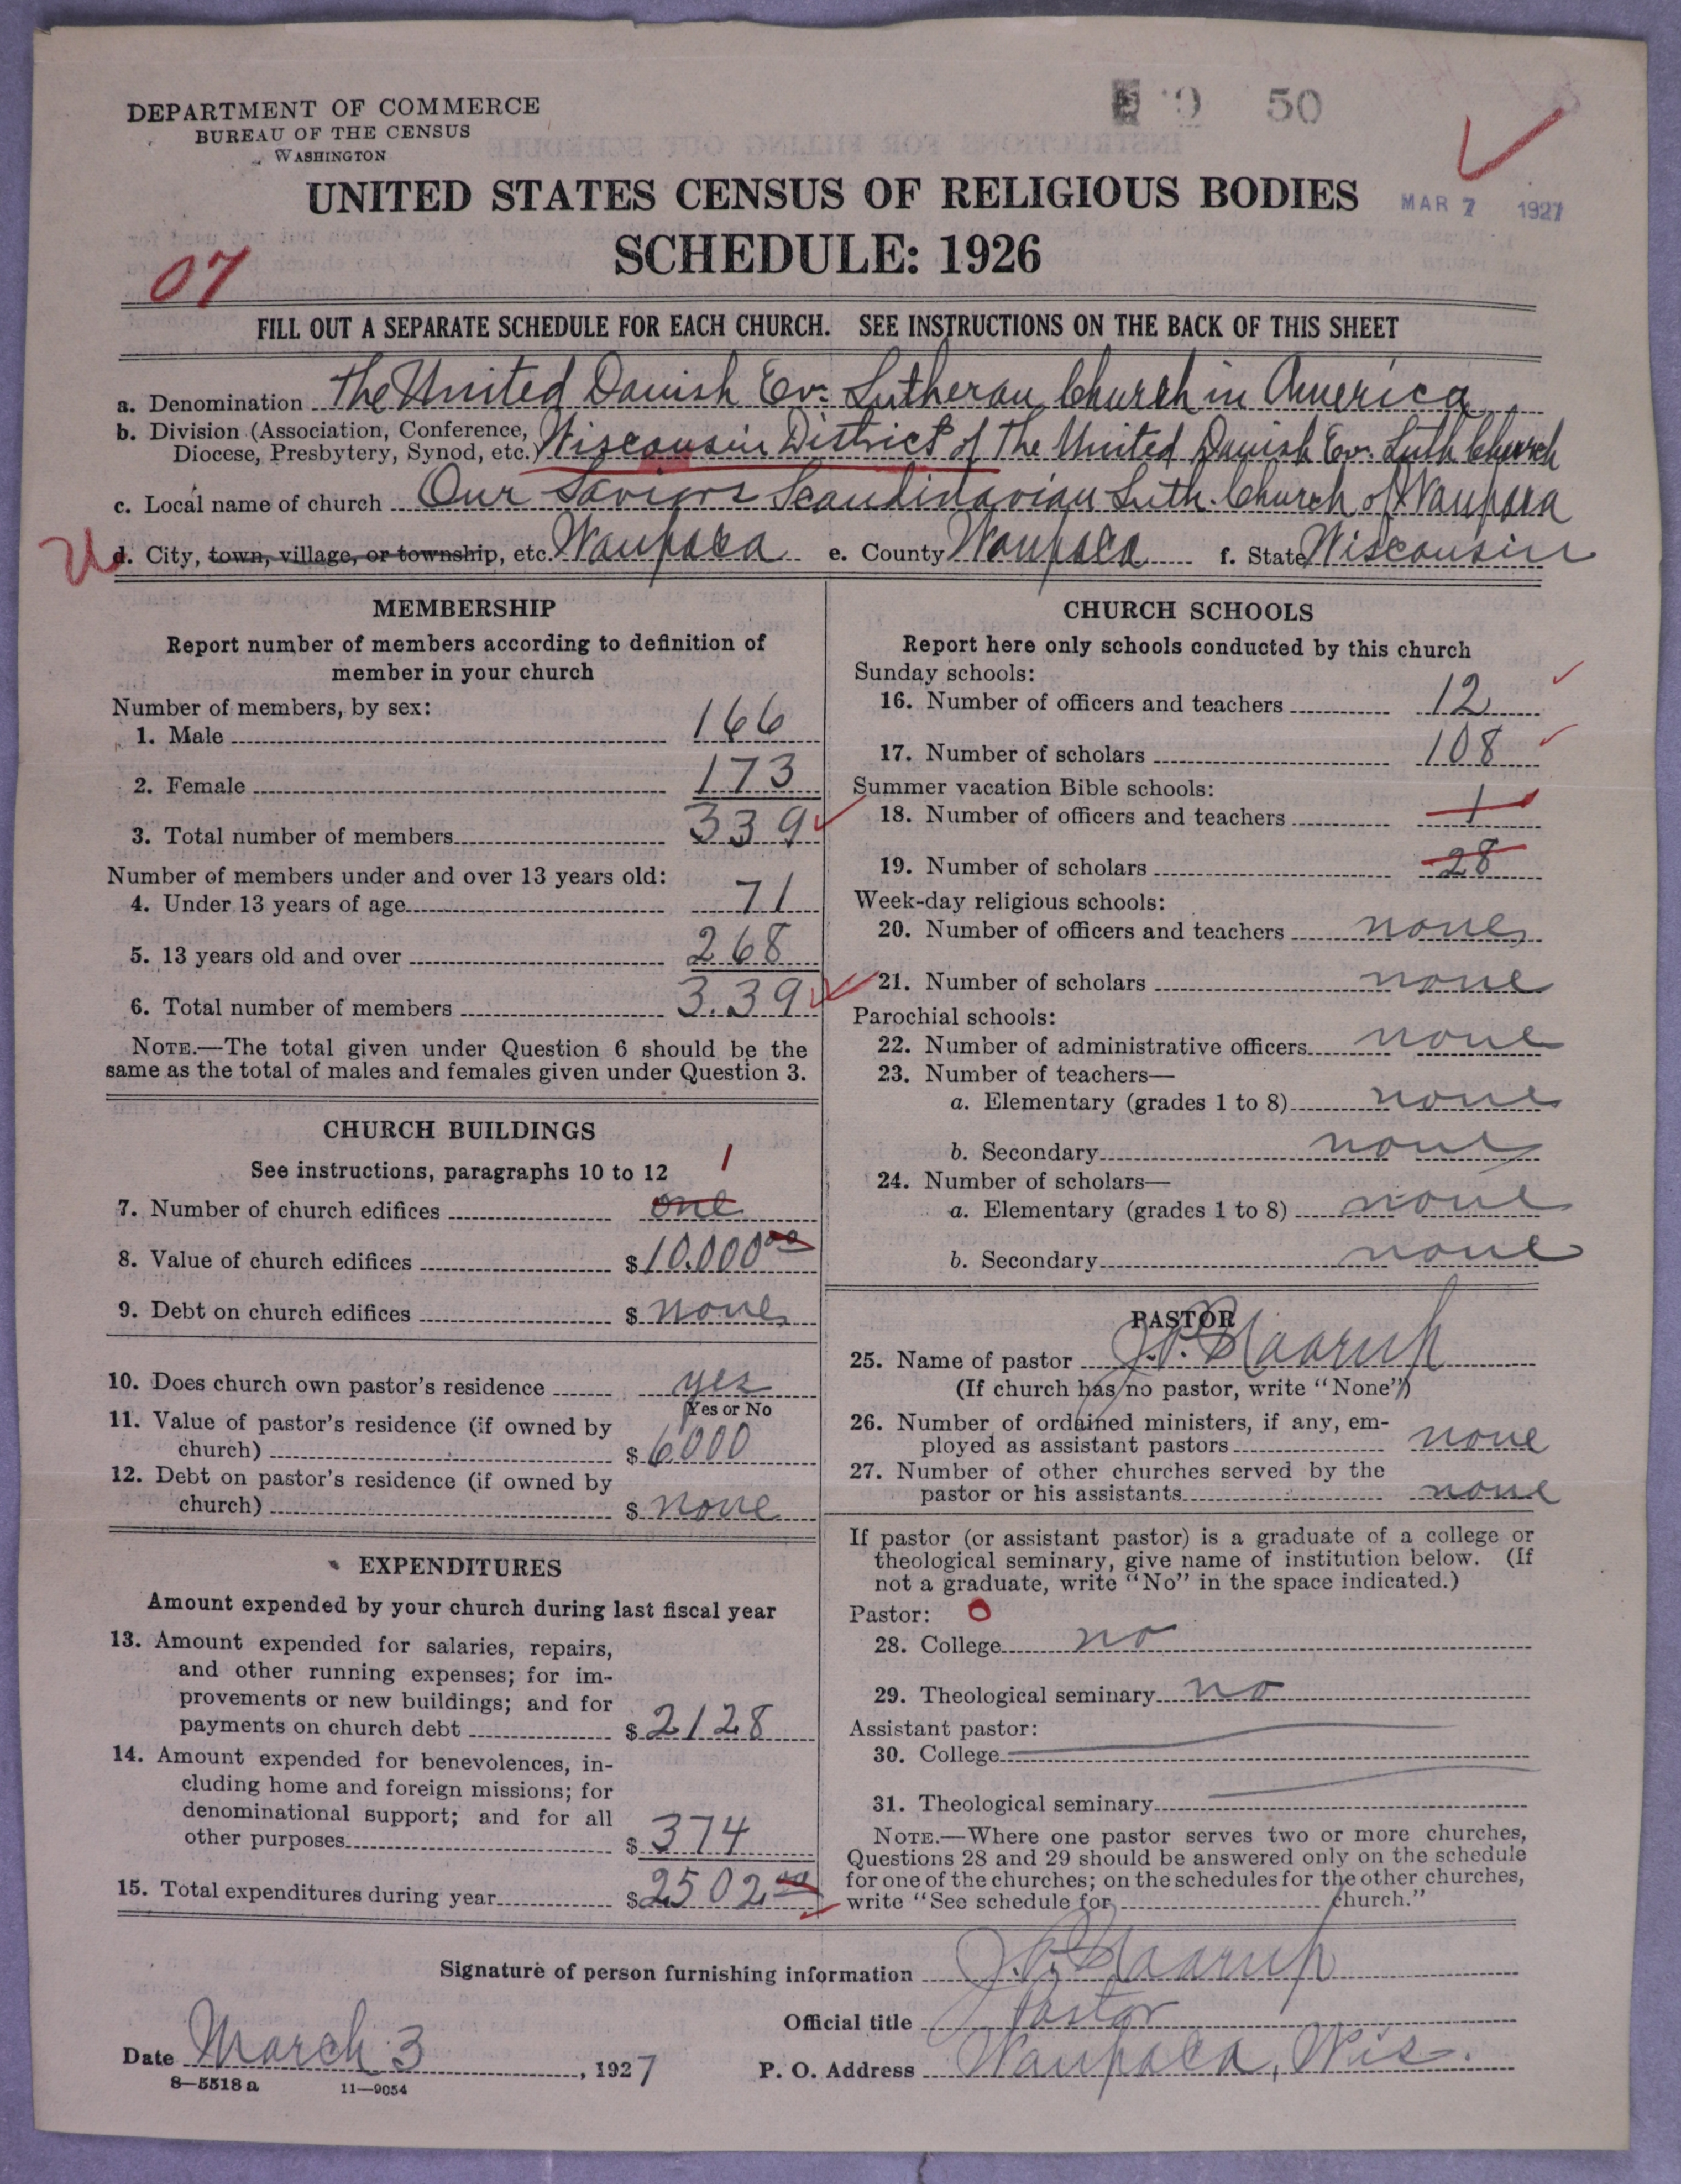 DEPARTMENT OF COMMERCE
BUREAU OF THE CENSUS
WASHINGTON
50
MAR 7 1927
UNITED STATES CENSUS OF RELIGIOUS BODIES
SCHEDULE: 1926
07
FILL OUT A SEPARATE SCHEDULE FOR EACH CHURCH. SEE INSTRUCTIONS ON THE BACK OF THIS SHEET
a. Denomination The United Danish Ev. Lutheran Church in America
b. Division (Association, Conference, Diocese, Presbytery, Synod, etc.) Wisconsin District of The United Danish Ev. Luth Church
c. Local name of church Our Saviors Scandinavian Luth. Church of Waupaca
d. City, town, village, or township, etc. Waupaca e. County Waupaca f. State Wisconsin
MEMBERSHIP
Report number of members according to definition of
member in your church
Number of members, by sex:
1. Male 166
2. Female 173
3. Total number of members 339
Number of members under and over 13 years old:
4. Under 13 years of age 71
5. 13 years old and over 268
6. Total number of members 339
NOTE.—The total given under Question 6 should be the
same as the total of males and females given under Question 3.
CHURCH BUILDINGS
See instructions, paragraphs 10 to 12
1
7. Number of church edifices one
8. Value of church edifices $10.000 00
9. Debt on church edifices $ none
10. Does church own pastor's residence yes
Yes or No
11. Value of pastor's residence (if owned by
church) $ 6000
12. Debt on pastor's residence (if owned by
church) $ none
EXPENDITURES
Amount expended by your church during last fiscal year
13. Amount expended for salaries, repairs,
and other running expenses; for im-
provements or new buildings; and for
payments on church debt $ 2128
14. Amount expended for benevolences, in-
cluding home and foreign missions; for
denominational support; and for all
other purposes $ 374
15. Total expenditures during year $2502 00
CHURCH SCHOOLS
Report here only schools conducted by this church
Sunday schools:
16. Number of officers and teachers 12
17. Number of scholars 108
Summer vacation Bible schools:
18. Number of officers and teachers 1
19. Number of scholars 28
Week-day religious schools:
20. Number of officers and teachers none
21. Number of scholars none
Parochial schools:
22. Number of administrative officers none
23. Number of teachers—
a. Elementary (grades 1 to 8) none
b. Secondary none
24. Number of scholars—
a. Elementary (grades 1 to 8) none
b. Secondary none
PASTOR
25. Name of pastor
(If church has no pastor, write "None")
26. Number of ordained ministers, if any, em-
ployed as assistant pastors none
27. Number of other churches served by the
pastor or his assistants none
If pastor (or assistant pastor) is a graduate of a college or
theological seminary, give name of institution below. (If
not a graduate, write "No" in the space indicated.)
Pastor: 0
28. College no
29. Theological seminary no
Assistant pastor:
30. College
31. Theological seminary
NOTE.—Where one pastor serves two or more churches,
Questions 28 and 29 should be answered only on the schedule
for one of the churches; on the schedules for the other churches,
write "See schedule for church."
Signature of person furnishing information
Official title Pastor
Date March 3, 1927 P. O. Address Waupaca, Wis.
8—5518 a 11—9054